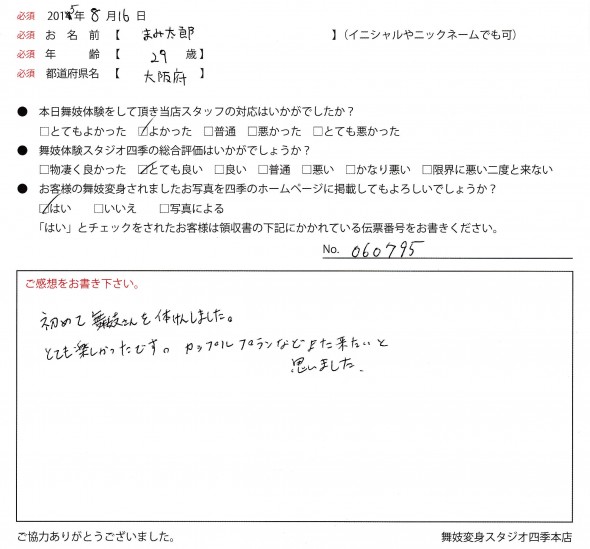 必須 2015年 8月16日
必須 お名前【 まみ太郎 】(イニシャルやニックネームでも可)
必須 年齢【 29 歳】
必須 都道府県名【 大阪府 】
● 本日舞妓体験をして頂き当店スタッフの対応はいかがでしたか?
□とてもよかった ☑よかった □普通 □悪かった □とても悪かった
● 舞妓体験スタジオ四季の総合評価はいかがでしょうか?
□物凄く良かった ☑とても良い □良い □普通 □悪い □かなり悪い □限界に悪い二度と来ない
● お客様の舞妓変身されましたお写真を四季のホームページに掲載してもよろしいでしょうか?
☑はい □いいえ □写真による
「はい」とチェックをされたお客様は領収書の下記にかかれている伝票番号をお書きください。
No. 060795
ご感想をお書き下さい。
初めて舞妓さんを体けんしました。
とても楽しかったです。 カップルプランなどまた来たいと
思いました。
ご協力ありがとうございました。 舞妓変身スタジオ四季本店